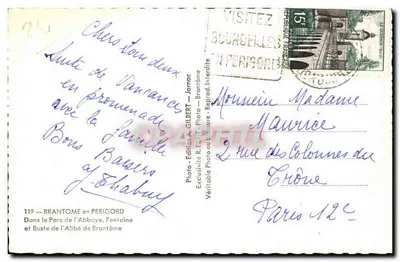 24
Chers tous deux
Suite de Vacances
en promenade
avec la famille
Bons Baisers
119 — BRANTOME en PERIGORD
Dans le Parc de l'Abbaye, Fontaine
et Buste de l'Abbé de Brantôme
Photo - Edition A. GILBERT — Jarnac
Exclusivité Photo — Brantôme
Véritable Photo au Bromure - Reprod. Interdite
VISITEZ
BOURDEILLES
EN PERIGORD
15F
Monsieur Madame
Maurice
2 rue des Colonnes du
Trône
Paris 12e